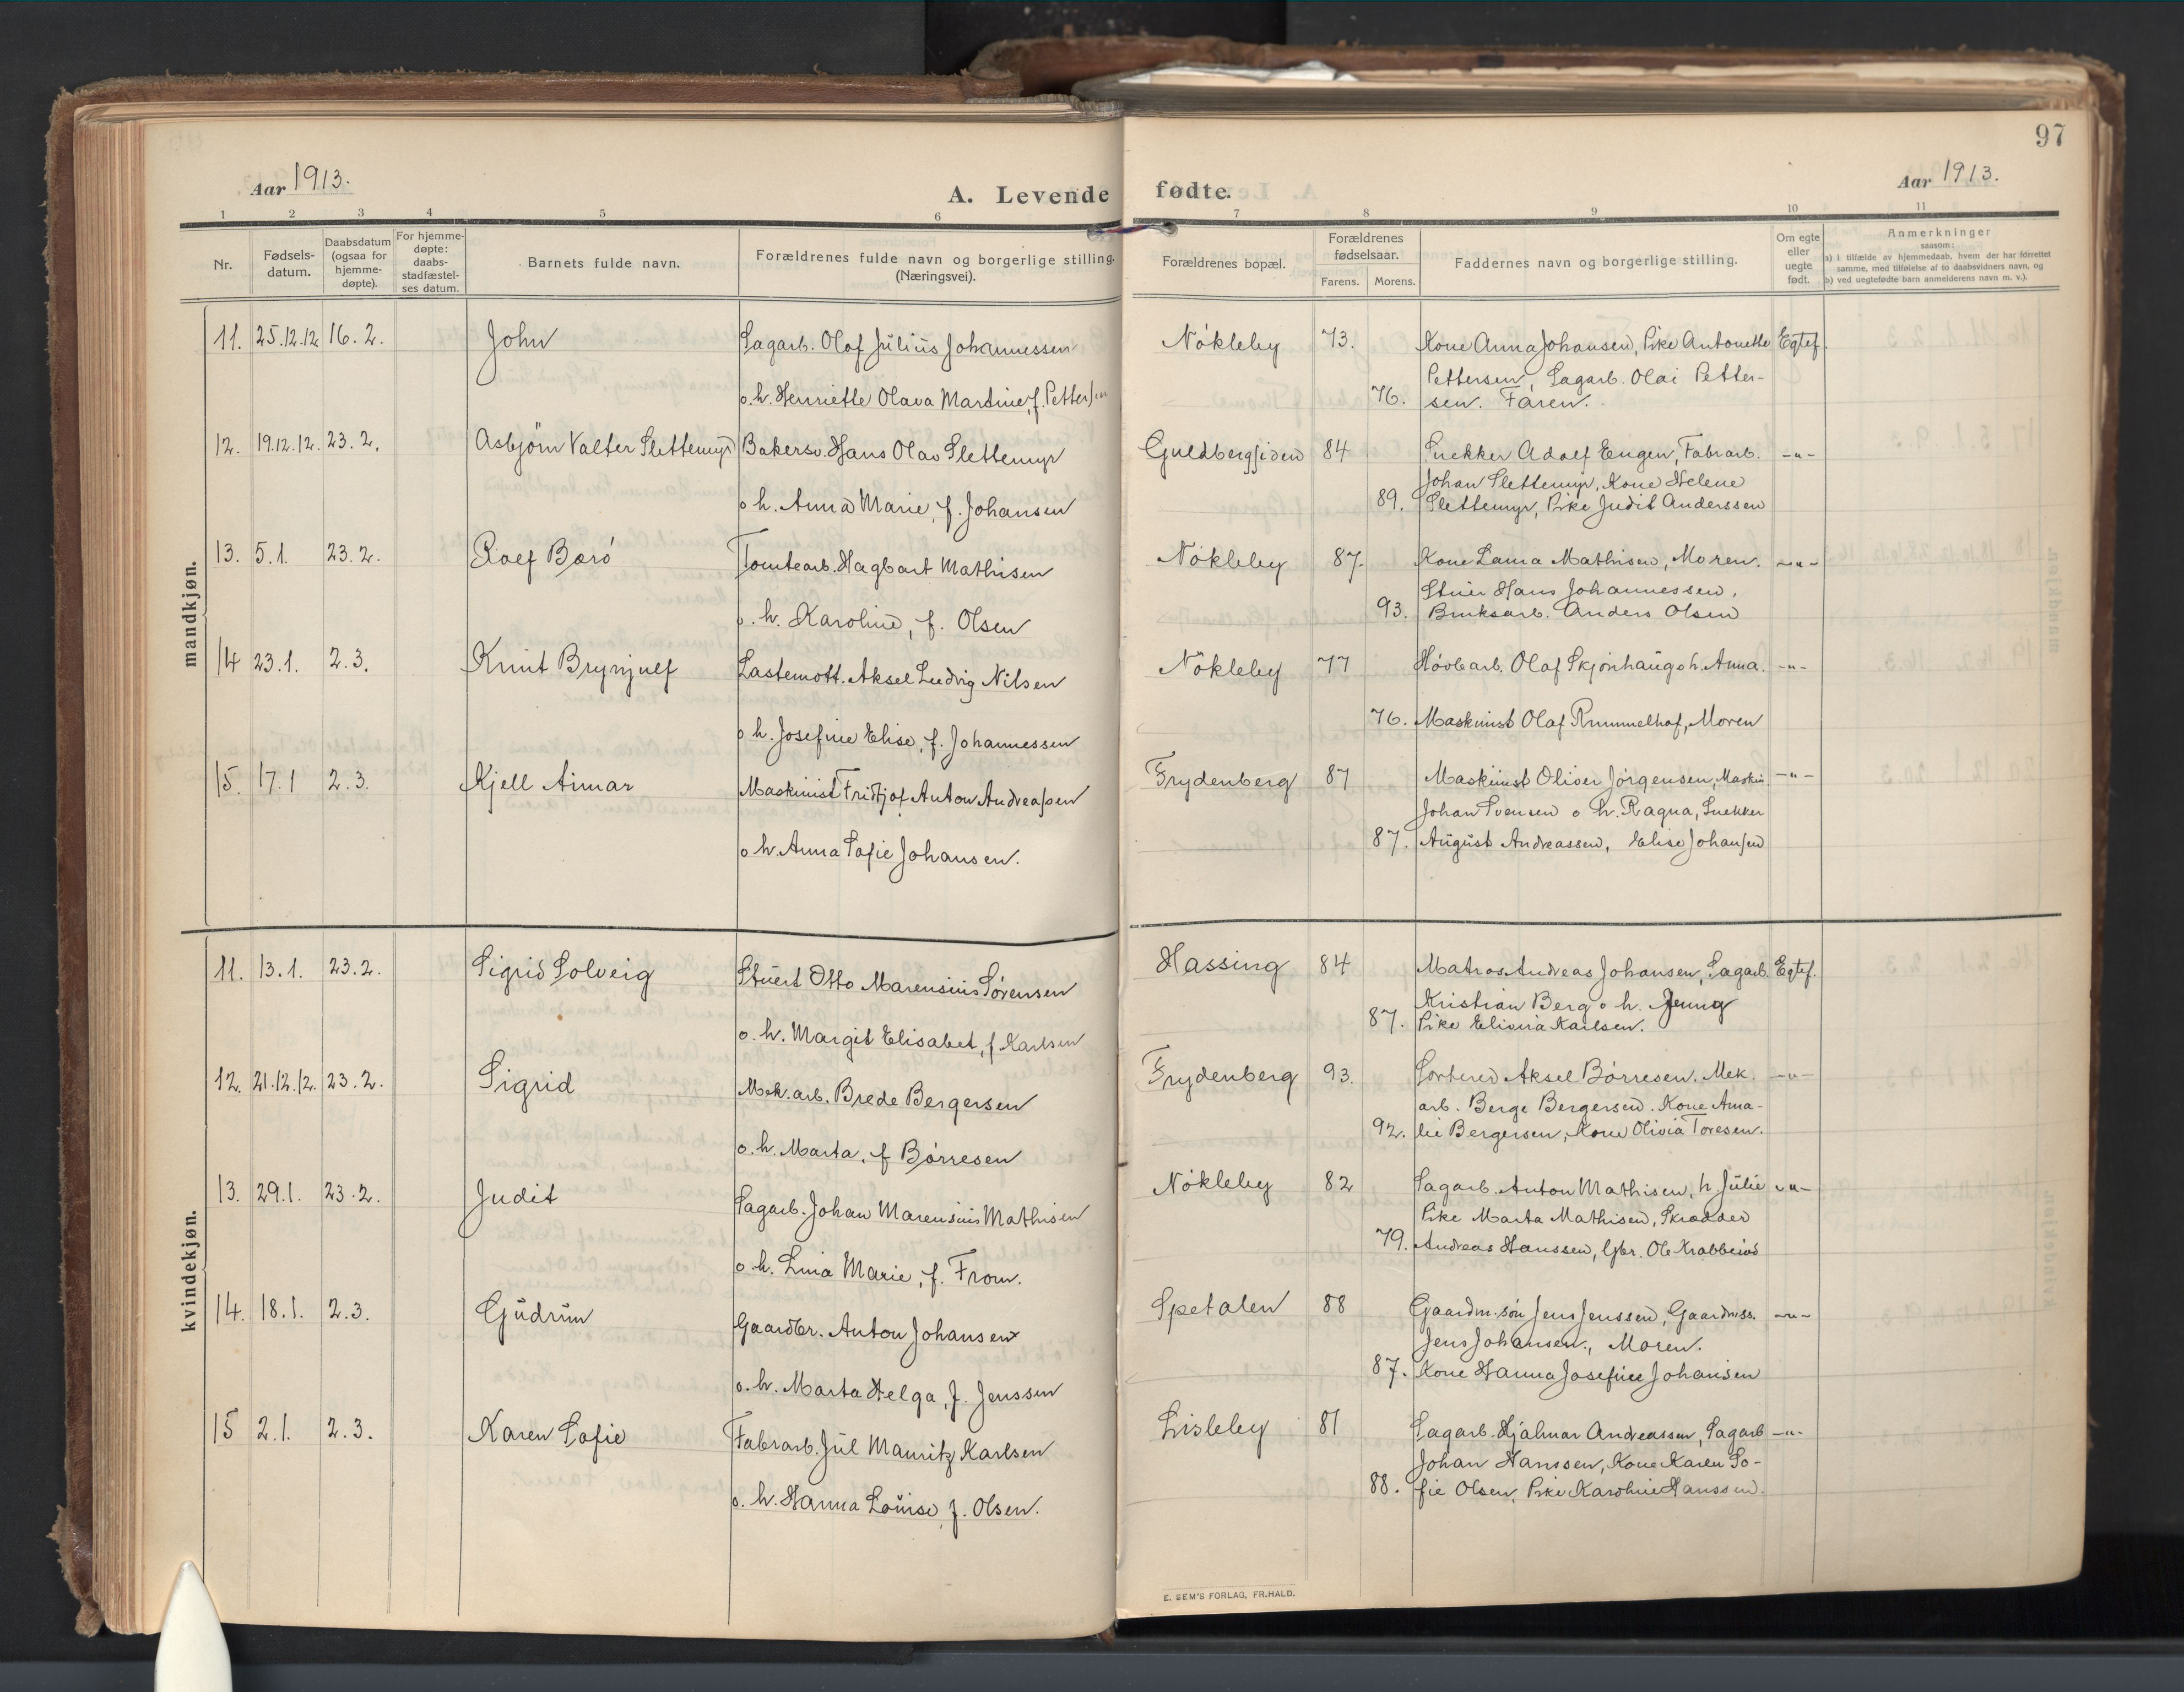 97
Aar 1913.
A. Levende fødte.
Aar 1913.
1 2 3 4 5 6 7 8 9 10 11
Nr.
Fødsels-
datum.
Daabsdatum
(ogsaa for
hjemme-
døpte).
For hjemme-
døpte:
daabs-
stadfæstel-
ses datum.
Barnets fulde navn.
Forældrenes fulde navn og borgerlige stilling.
(Næringsvei).
Forældrenes bopæl.
Forældrenes
fødselsaar.
Farens. Morens.
Faddernes navn og borgerlige stilling.
Om egte
eller
uegte
født.
Anmerkninger
saasom:
a) i tilfælde av hjemmedaab, hvem der har forrettet
samme, med tilføielse af to daabsvidners navn, og
b) ved uegtefødte barn anmelderens navn m. v.).
mandkjøn.
11. 25.12.12 16.2. John Sagarb. Olaf Julius Johannessen Nökleby 73. Kone Anna Johansen, Pike Antonette Egtef.
Pettersen, Sagarb. Olai Petter-
o. h. Henriette Olava Martine, f. Petterssen 76. sen. Faren.
12. 19.12.12. 23.2. Asbjörn Valter Slettemyr Bakersv. Hans Olav Slettemyr Guldbergsiden 84 Snekker Adolf Eugen, Fabrarb. -"-
Johan Slettemyr, Kone Helene
o h. Anna Marie, f. Johansen 89. Slettemyr, Pike Judit Anderssen
13. 5.1. 23.2. Rolf Barö Tomtearb. Hagbart Mathisen Nökleby 87. Kone Laura Mathisen, Moren. -"-
Stuer Hans Johannessen,
o. h. Karoline, f. Olsen 93. Bruksarb. Anders Olsen
14 23.1. 2.3. Knut Brynjulf Lastemott. Aksel Ludvig Nilsen Nökleby 77 Hövlearb. Olaf Skjönhaug o h. Anna. -"-
o h. Josefine Elise, f. Johannessen 76. Maskinist Olaf Rummelhof, Moren
15. 17.1 2.3. Kjell Aimar Maskinist Fridtjof Anton Andreassen Frydenberg 87 Maskinist Oliver Jörgensen, Maskin. -"-
Johan Svensen o h. Ragna, Snekker
o h. Anna Sofie Johansen. 87. August Andreassen, Elise Johansen
kvindekjøn.
11. 13.1. 23.2. Sigrid Solveig Stuert Otto Marensius Sörensen Hassing 84 Matros Andreas Johansen, Sagarb. Egtef.
Kristian Berg o h. Jenny
o. h. Margit Elisabet, f. Karlsen 87. Pike Elivira Karlsen.
12. 21.12.12. 23.2. Sigrid Mek. arb. Brede Bergersen Frydenberg 93. Sorterer Aksel Börresen. Mek. -"-
arb. Berge Bergersen. Kone Ama-
o. h. Marta, f Börresen 92. lie Bergersen, Kone Olivia Toresen.
13. 29.1. 23.2. Judit Sagarb. Johan Marensius Mathisen Nökleby 82 Sagarb. Anton Mathisen, h Julie -"-
Pike Marta Mathisen, Skrædder
o. h. Lina Marie, f. From. 79. Andreas Hanssen, Gbr. Ole Krabberød
14. 18.1. 2.3. Gudrun Gaardbr. Anton Johansen Spetalen 88 Gaardm. sön Jens Jenssen, Gaardmss. -"-
Jens Johansen., Moren.
o. h. Marta Helga, f. Jenssen 87. Kone Hanna Josefine Johansen
15 2.1. 2.3. Karen Sofie Fabrarb. Jul Mauritz Karlsen Lisleby 81 Sagarb. Hjalmar Andreassen, Sagarb -"-
Johan Hanssen, Kone Karen So-
o. h. Hanna Louise, f. Olsen. 88. fie Olsen, Pike Karoline Hanssen.
E. SEM'S FORLAG, FR.HALD.